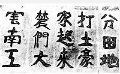 雲南工
農們大
家起來
打土豪
分田地